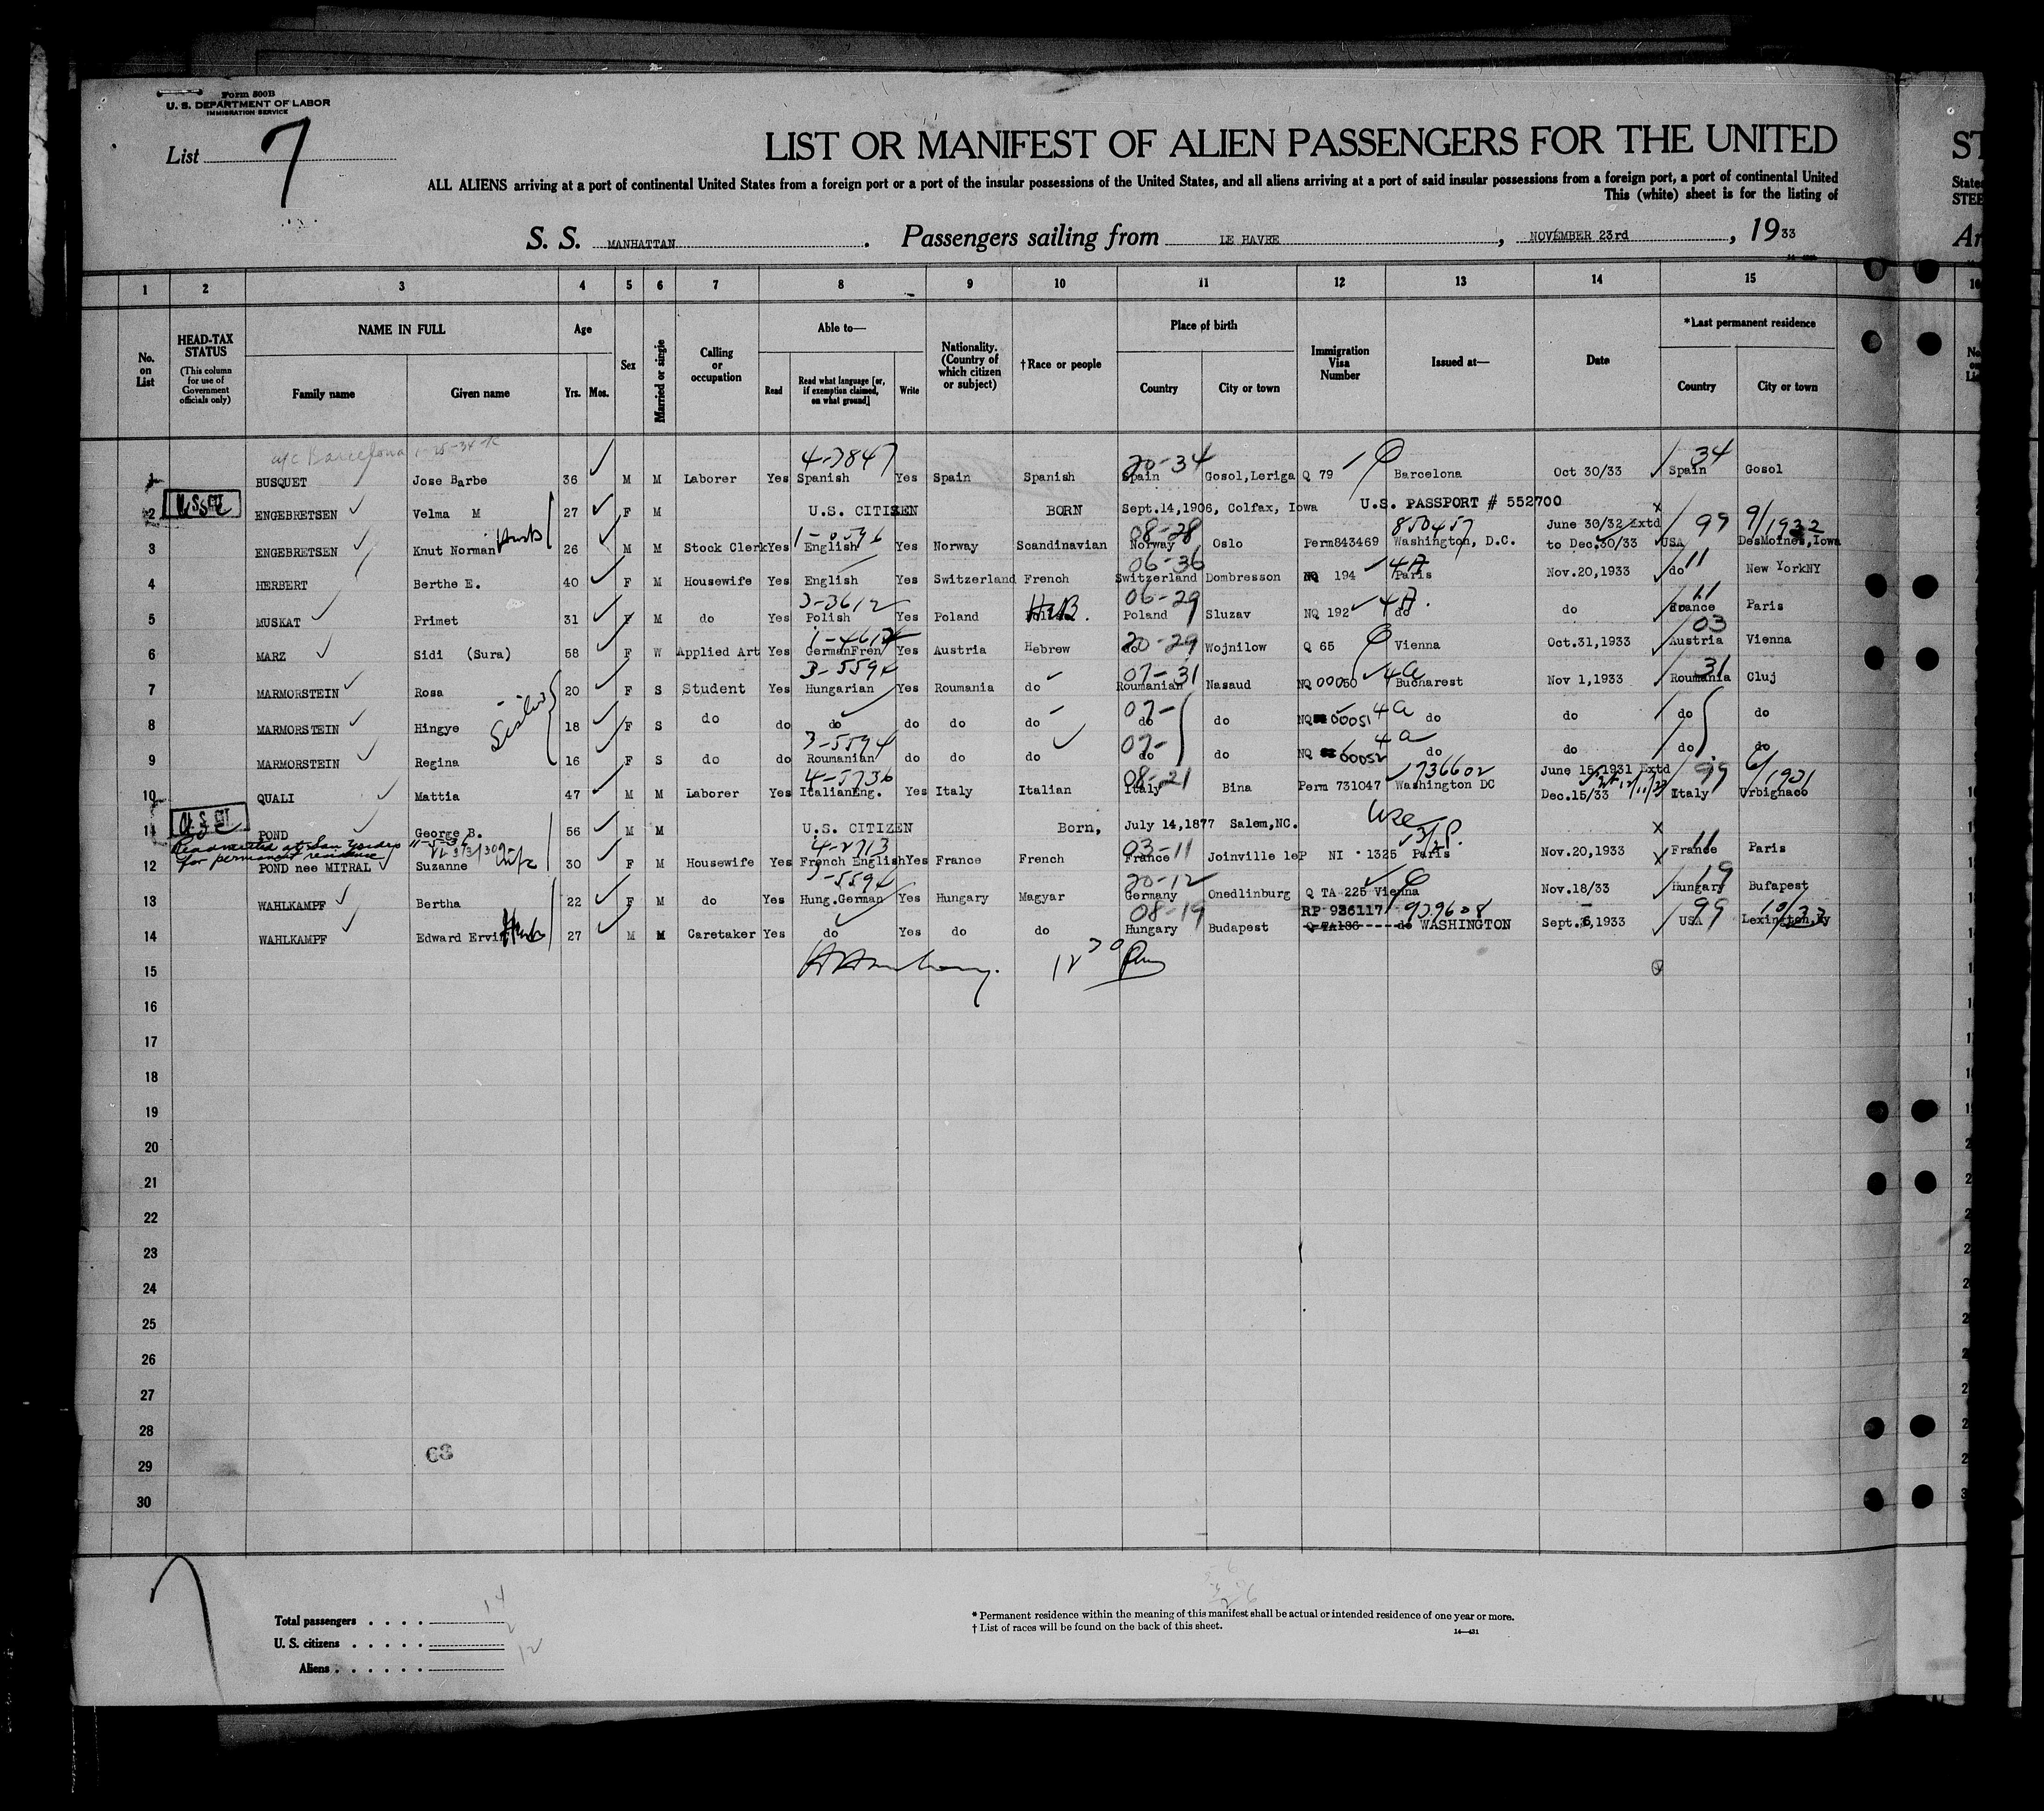 Form 500B
U. S. DEPARTMENT OF LABOR
IMMIGRATION SERVICE
List 7
LIST OR MANIFEST OF ALIEN PASSENGERS FOR THE UNITED
ALL ALIENS arriving at a port of continental United States from a foreign port or a port of the insular possessions of the United States, and all aliens arriving at a port of said insular possessions from a foreign port, a port of continental United
This (white) sheet is for the listing of
S. S. MANHATTAN. Passengers sailing from LE HAVRE, NOVEMBER 23rd, 1933
1 2 3 4 5 6 7 8 9 10 11 12 13 14 15
No. on List
HEAD-TAX STATUS (This column for use of Government officials only)
NAME IN FULL
Family name Given name
Age
Yrs. Mos.
Sex
Married or single
Calling or occupation
Able to—
Read Read what language [or, if exemption claimed, on what ground] Write
Nationality. (Country of which citizen or subject)
†Race or people
Place of birth
Country City or town
Immigration Visa Number
Issued at—
Date
*Last permanent residence
Country City or town
Barcelona 1-25-34 4-3847 20-34 34
1 BUSQUET Jose Barbe 36 M M Laborer Yes Spanish Yes Spain Spanish Spain Gosol,Leriga Q 79 Barcelona Oct 30/33 Spain Gosol
2 ENGEBRETSEN Velma M 27 F M U.S. CITIZEN BORN Sept.14,1906, Colfax, Iowa U.S. PASSPORT # 552700 x
08-28 850457 June 30/32 Extd 99 9/1932
3 ENGEBRETSEN Knut Norman 26 M M Stock Clerk Yes English Yes Norway Scandinavian Norway Oslo Perm843469 Washington, D.C. to Dec.30/33 USA DesMoines,Iowa
06-36 4A 11
4 HERBERT Berthe E. 40 F M Housewife Yes English Yes Switzerland French Switzerland Dombresson NQ 194 Paris Nov.20,1933 do New YorkNY
3-3612 06-29 4A. 11
5 MUSKAT Primet 31 F M do Yes Polish Yes Poland HeB. Poland Sluzav NQ 192 do do France Paris
1-4612 20-29 03
6 MARZ Sidi (Sura) 58 F W Applied Art Yes GermanFren Yes Austria Hebrew do Wojnilow Q 65 Vienna Oct.31,1933 Austria Vienna
3-5594 07-31 4a 31
7 MARMORSTEIN Rosa 20 F S Student Yes Hungarian Yes Roumania do Roumanian Nasaud NQ 00050 Bucharest Nov 1,1933 Roumania Cluj
Sisters 07- 4a
8 MARMORSTEIN Hingye 18 F S do do do do do do do do NQ 00051 do do do do
3-5594 07- 4a
9 MARMORSTEIN Regina 16 F S do do Roumanian do do do do do NQ 00052 do do do do
4-5736 08-21 736602 June 15,1931 Extd 99 6/1931
10 QUALI Mattia 47 M M Laborer Yes ItalianEng. Yes Italy Italian Italy Bina Perm 731047 Washington DC Dec.15/33 Italy Urbignaco
11 POND George B. 56 M M U.S. CITIZEN Born, July 14,1877 Salem,NC. x
Readmitted at San Ysidro 11-5-34
for permanent residence
4-2713 03-11 11
12 POND nee MITRAL Suzanne Wife 30 F M Housewife Yes French English Yes France French France Joinville leP NI 1325 Paris Nov.20,1933 x France Paris
5594 20-12 19
13 WAHLKAMPF Bertha 22 F M do Yes Hung.German Yes Hungary Magyar Germany Onedlinburg Q TA 225 Vienna Nov.18/33 Hungary Bufapest
08-19 RP 936117 939608 99 10/33
14 WAHLKAMPF Edward Ervin 27 M M Caretaker Yes do Yes do do Hungary Budapest Q TA186 do WASHINGTON Sept.6,1933 USA Lexington,Ky
15
16
17
18
19
20
21
22
23
24
25
26
27
28
29
30
63
Total passengers . . . . 14
U. S. citizens . . . . . 2
Aliens . . . . . . 12
* Permanent residence within the meaning of this manifest shall be actual or intended residence of one year or more.
† List of races will be found on the back of this sheet.